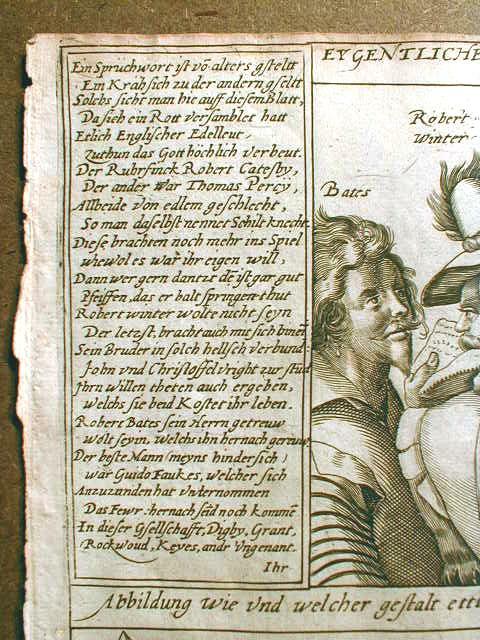 Ein Spruchwort ist võ alters gsteltt
Ein Kräh sich zu der andern gseltt
Solchs sicht man hie auff diesem Blatt,
Da sich ein Rott versamblet hatt
Etlich Englischer Edelleut,
zuthun das Gott höchlich verbeut.
Der Ruhrfinck Robert Catesby,
Der ander war Thomas Percy,
Allbeide von edlem geschlecht,
So man daselbst nennet Schiltknecht.
Diese brachten noch mehr ins Spiel
wiewol es war ihr eigen will,
Dann wer gern dantzt dẽ ist gar gut
Pfeiffen, das er balt springen thut
Robert winter wolte nicht seyn
Der letzst, bracht auch mit sich hinein
Sein Bruder in solch hellsch verbund:
John vnd Christoffel vright zur stūd
Ihrn willen theten auch ergeben,
welchs sie beid Kostet ihr leben.
Robert Bates sein Herrn getreuw
wolt seyin, welchs ihn hernach gereuw
Der beste Mann (meyns hinder sich)
war Guido Faukes, welcher sich
Anzuzunden hat vnternommen
Das Fewr hernach
In dieser Gsellschafft, Digby, Grant,
Rockwoud, Keyes, andr Vngenant.
Ihr
EYGENTLICHE
Robert
Winter
Bates
Abbildung wie vnd welcher gestalt ettl